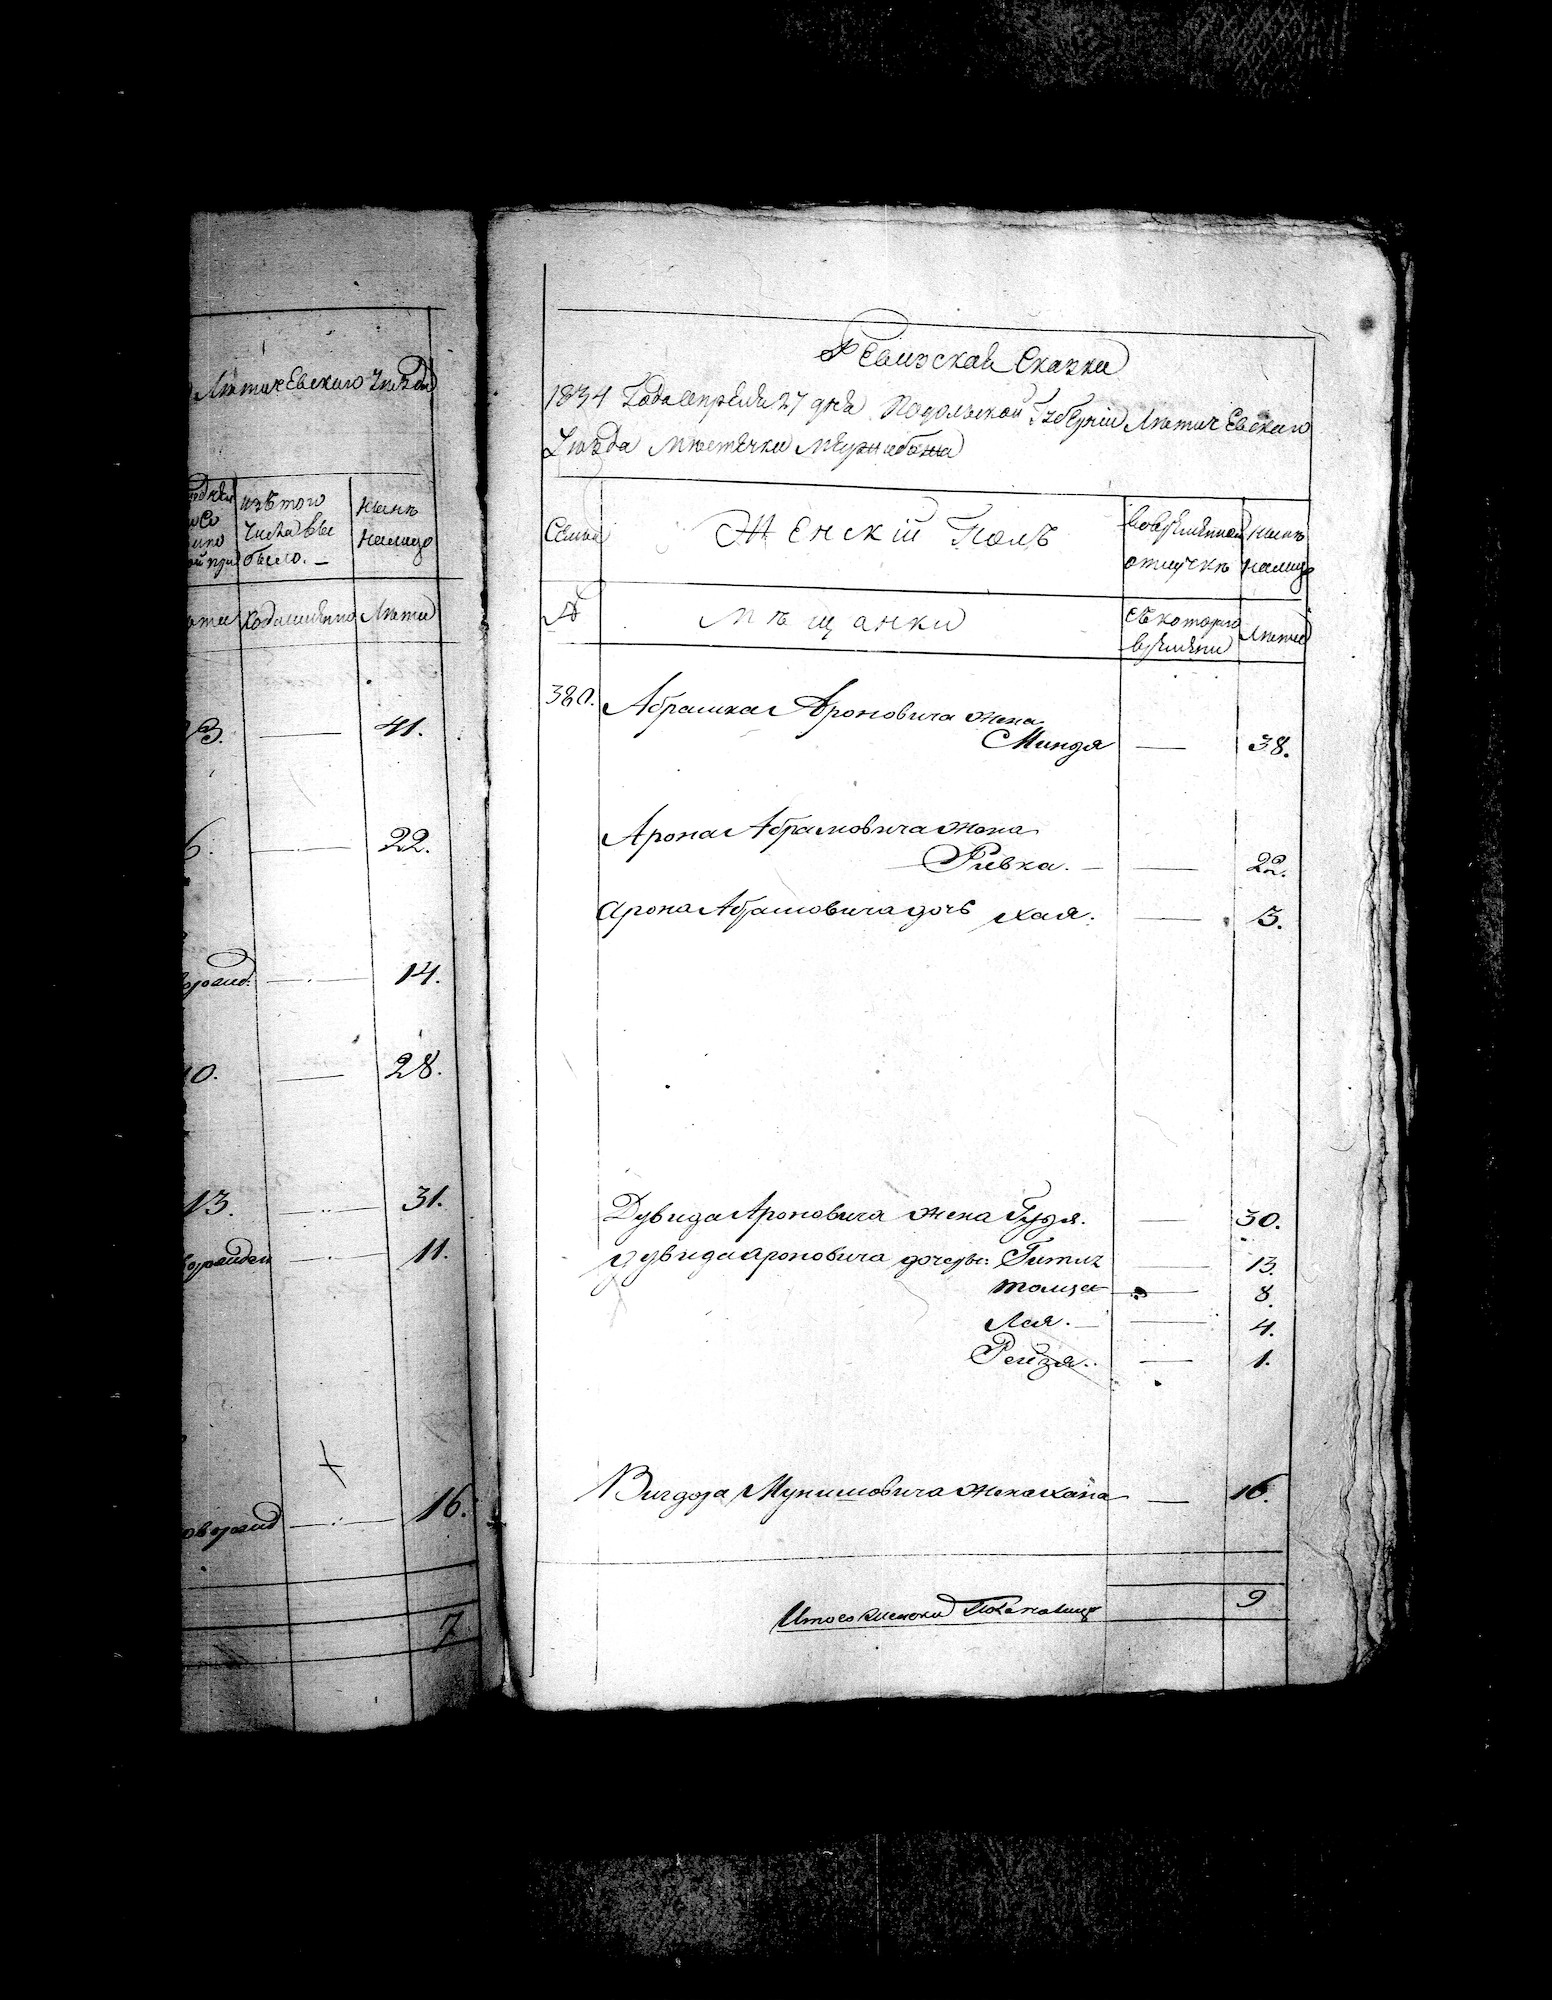 Лѣтичевскаго уѣзда
изъ того
числа вы
было. —
нынѣ
налицо
Лѣта
когда имянно
Лѣта
3. — 41.
6. — 22.
— 14.
0. — 28.
13. — 31.
— 11.
— 16.
7
Ревизская Сказка
1834 Года апреля 27 дня Подольской Губерніи Лѣтичевскаго
Уѣзда Мѣстечка Меджибожа
Семьи
Женскій Полъ
Во временной
отлучкѣ
нынѣ
налицо
№
Мѣщанки
съ котораго
времени
Лѣта
380. Абрамка Ароновича жена
Миндя — 38.
Арона Абрамовича жена
Ривка. — — 22.
Арона Абрамовича дочь Хая. — 3.
Дувида Ароновича жена Гудя. — 30.
Дувида Ароновича дочеры: Гитля — 13.
— 8.
Лая. — — 4.
Рейзя. — 1.
Вигдора Мунишовича жена Хана — 16.
Итого женска Пола налицо 9